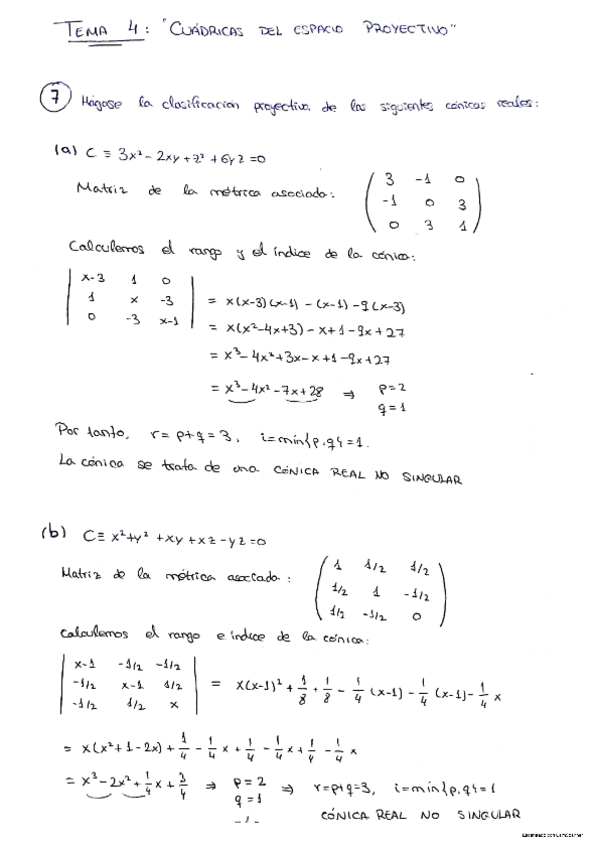 TEMA 4: "CUÁDRICAS DEL ESPACIO PROYECTIVO"
7 Hágase la clasificación proyectiva de las siguientes cónicas reales:
(a) C ≡ 3x² - 2xy + z² + 6yz = 0
Matriz de la métrica asociada:
3 -1 0
-1 0 3
0 3 1
Calculemos el rango y el índice de la cónica:
x-3 1 0
1 x -3
0 -3 x-1
= x(x-3)(x-1) - (x-1) - 9(x-3)
= x(x²-4x+3) - x + 1 - 9x + 27
= x³ - 4x² + 3x - x + 1 - 9x + 27
= x³ - 4x² - 7x + 28 ⇒ p=2
q=1
Por tanto, r = p+q = 3, i = mín{p,q} = 1.
La cónica se trata de una CÓNICA REAL NO SINGULAR
(b) C ≡ x² + y² + xy + xz - yz = 0
Matriz de la métrica asociada:
1 1/2 1/2
1/2 1 -1/2
1/2 -1/2 0
Calculemos el rango e índice de la cónica:
x-1 -1/2 -1/2
-1/2 x-1 1/2
-1/2 1/2 x
= x(x-1)² + 1/8 + 1/8 - 1/4 (x-1) - 1/4 (x-1) - 1/4 x
= x(x²+1-2x) + 1/4 - 1/4 x + 1/4 - 1/4 x + 1/4 - 1/4 x
= x³ - 2x² + 1/4 x + 3/4 ⇒ p=2 ⇒ r=p+q=3, i=mín{p,q}=1
q=1
CÓNICA REAL NO SINGULAR